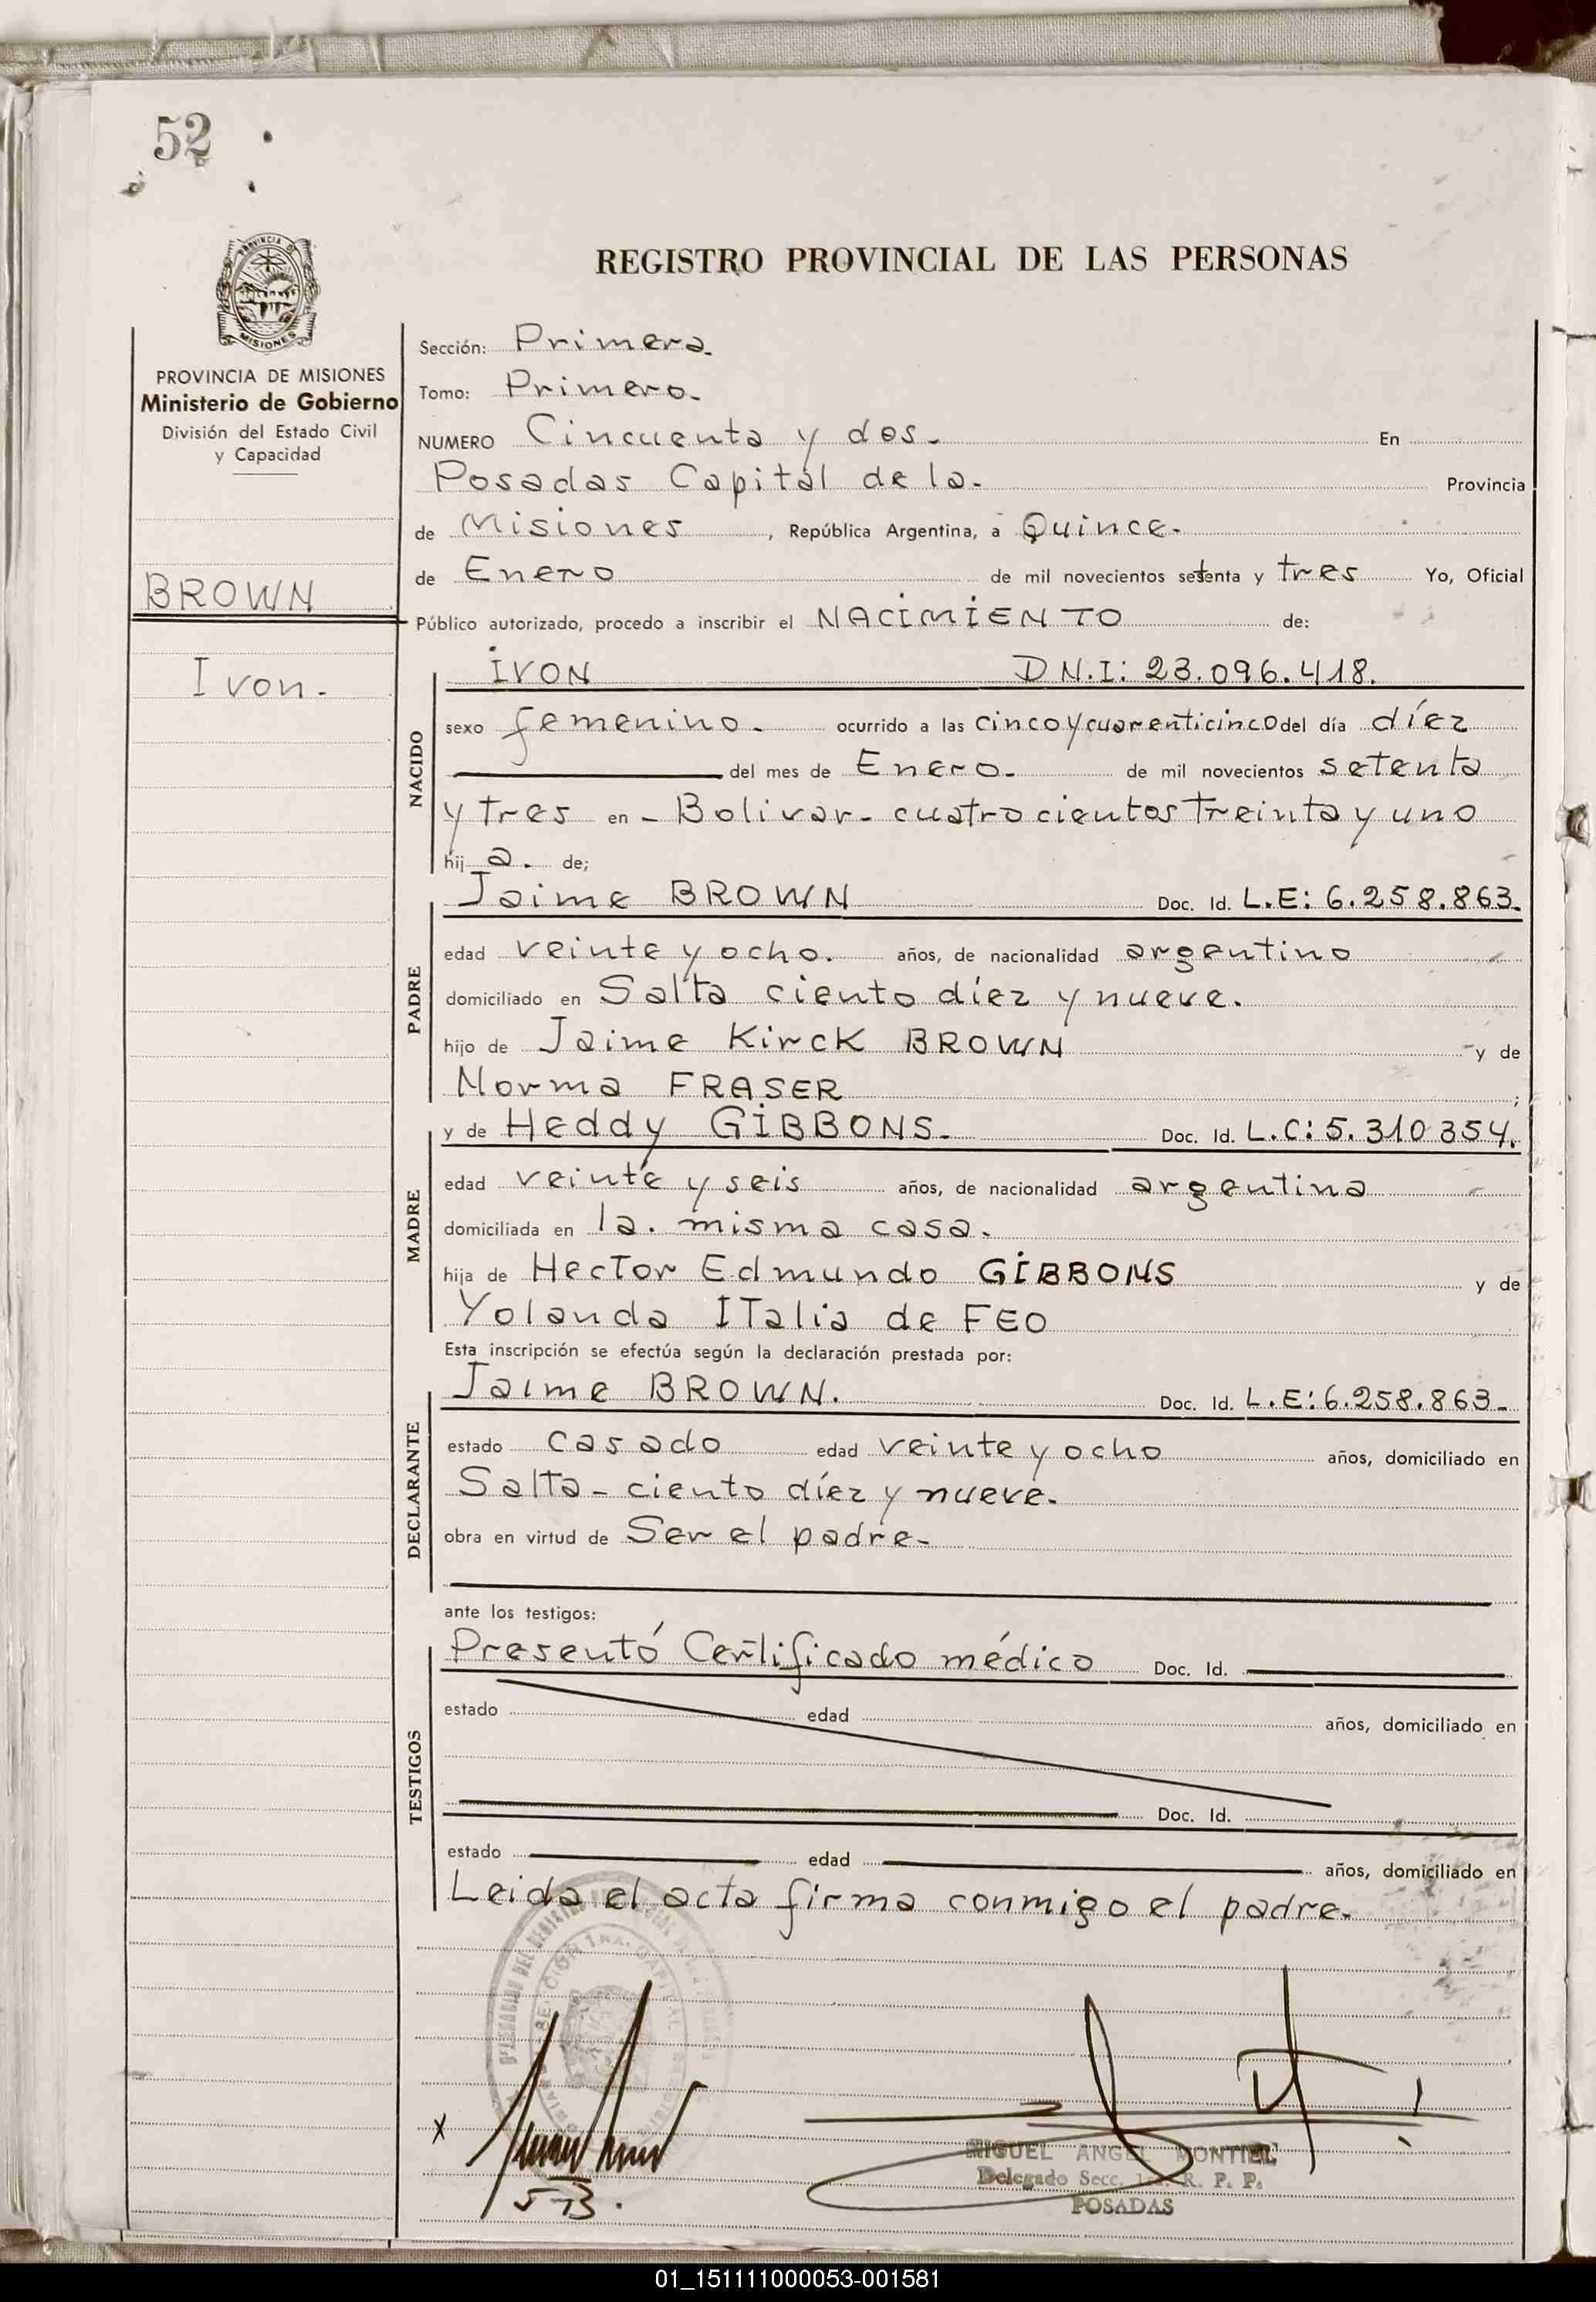 52
REGISTRO PROVINCIAL DE LAS PERSONAS
PROVINCIA DE MISIONES
MISIONES
PROVINCIA DE MISIONES
Ministerio de Gobierno
División del Estado Civil
y Capacidad
BROWN
Ivon.
Sección: Primera.
Tomo: Primero.
NUMERO Cincuenta y dos. En
Posadas Capital de la. Provincia
de Misiones, República Argentina, a Quince.
de Enero de mil novecientos setenta y tres Yo, Oficial
Público autorizado, procedo a inscribir el NACIMIENTO de:
NACIDO
IVON D N.I: 23.096.418.
sexo femenino. ocurrido a las cinco y cuarenticinco del día díez
del mes de Enero. de mil novecientos setenta
y tres en - Bolivar - cuatrocientos treinta y uno
hij a. de;
PADRE
Jaime BROWN Doc. Id. L.E: 6.258.863.
edad veinte y ocho. años, de nacionalidad argentino
domiciliado en Salta ciento díez y nueve.
hijo de Jaime Kirck BROWN y de
Norma FRASER ;
MADRE
y de Heddy GIBBONS. Doc. Id. L.C: 5.310 354.
edad veinte y seis años, de nacionalidad argentina
domiciliada en la. misma casa.
hija de Hector Edmundo GIBBONS y de
Yolanda ITalia de FEO
Esta inscripción se efectúa según la declaración prestada por:
DECLARANTE
Jaime BROWN. Doc. Id. L.E: 6.258.863-
estado casado edad veinte y ocho años, domiciliado en
Salta - ciento díez y nueve.
obra en virtud de Ser el padre.
ante los testigos:
TESTIGOS
Presentó Certificado médico Doc. Id.
estado edad años, domiciliado en
Doc. Id.
estado edad años, domiciliado en
Leida el acta firma conmigo el padre.
x
MIGUEL ANGEL MONTIEL
Delegado Secc. R. P. P.
POSADAS
01_151111000053-001581